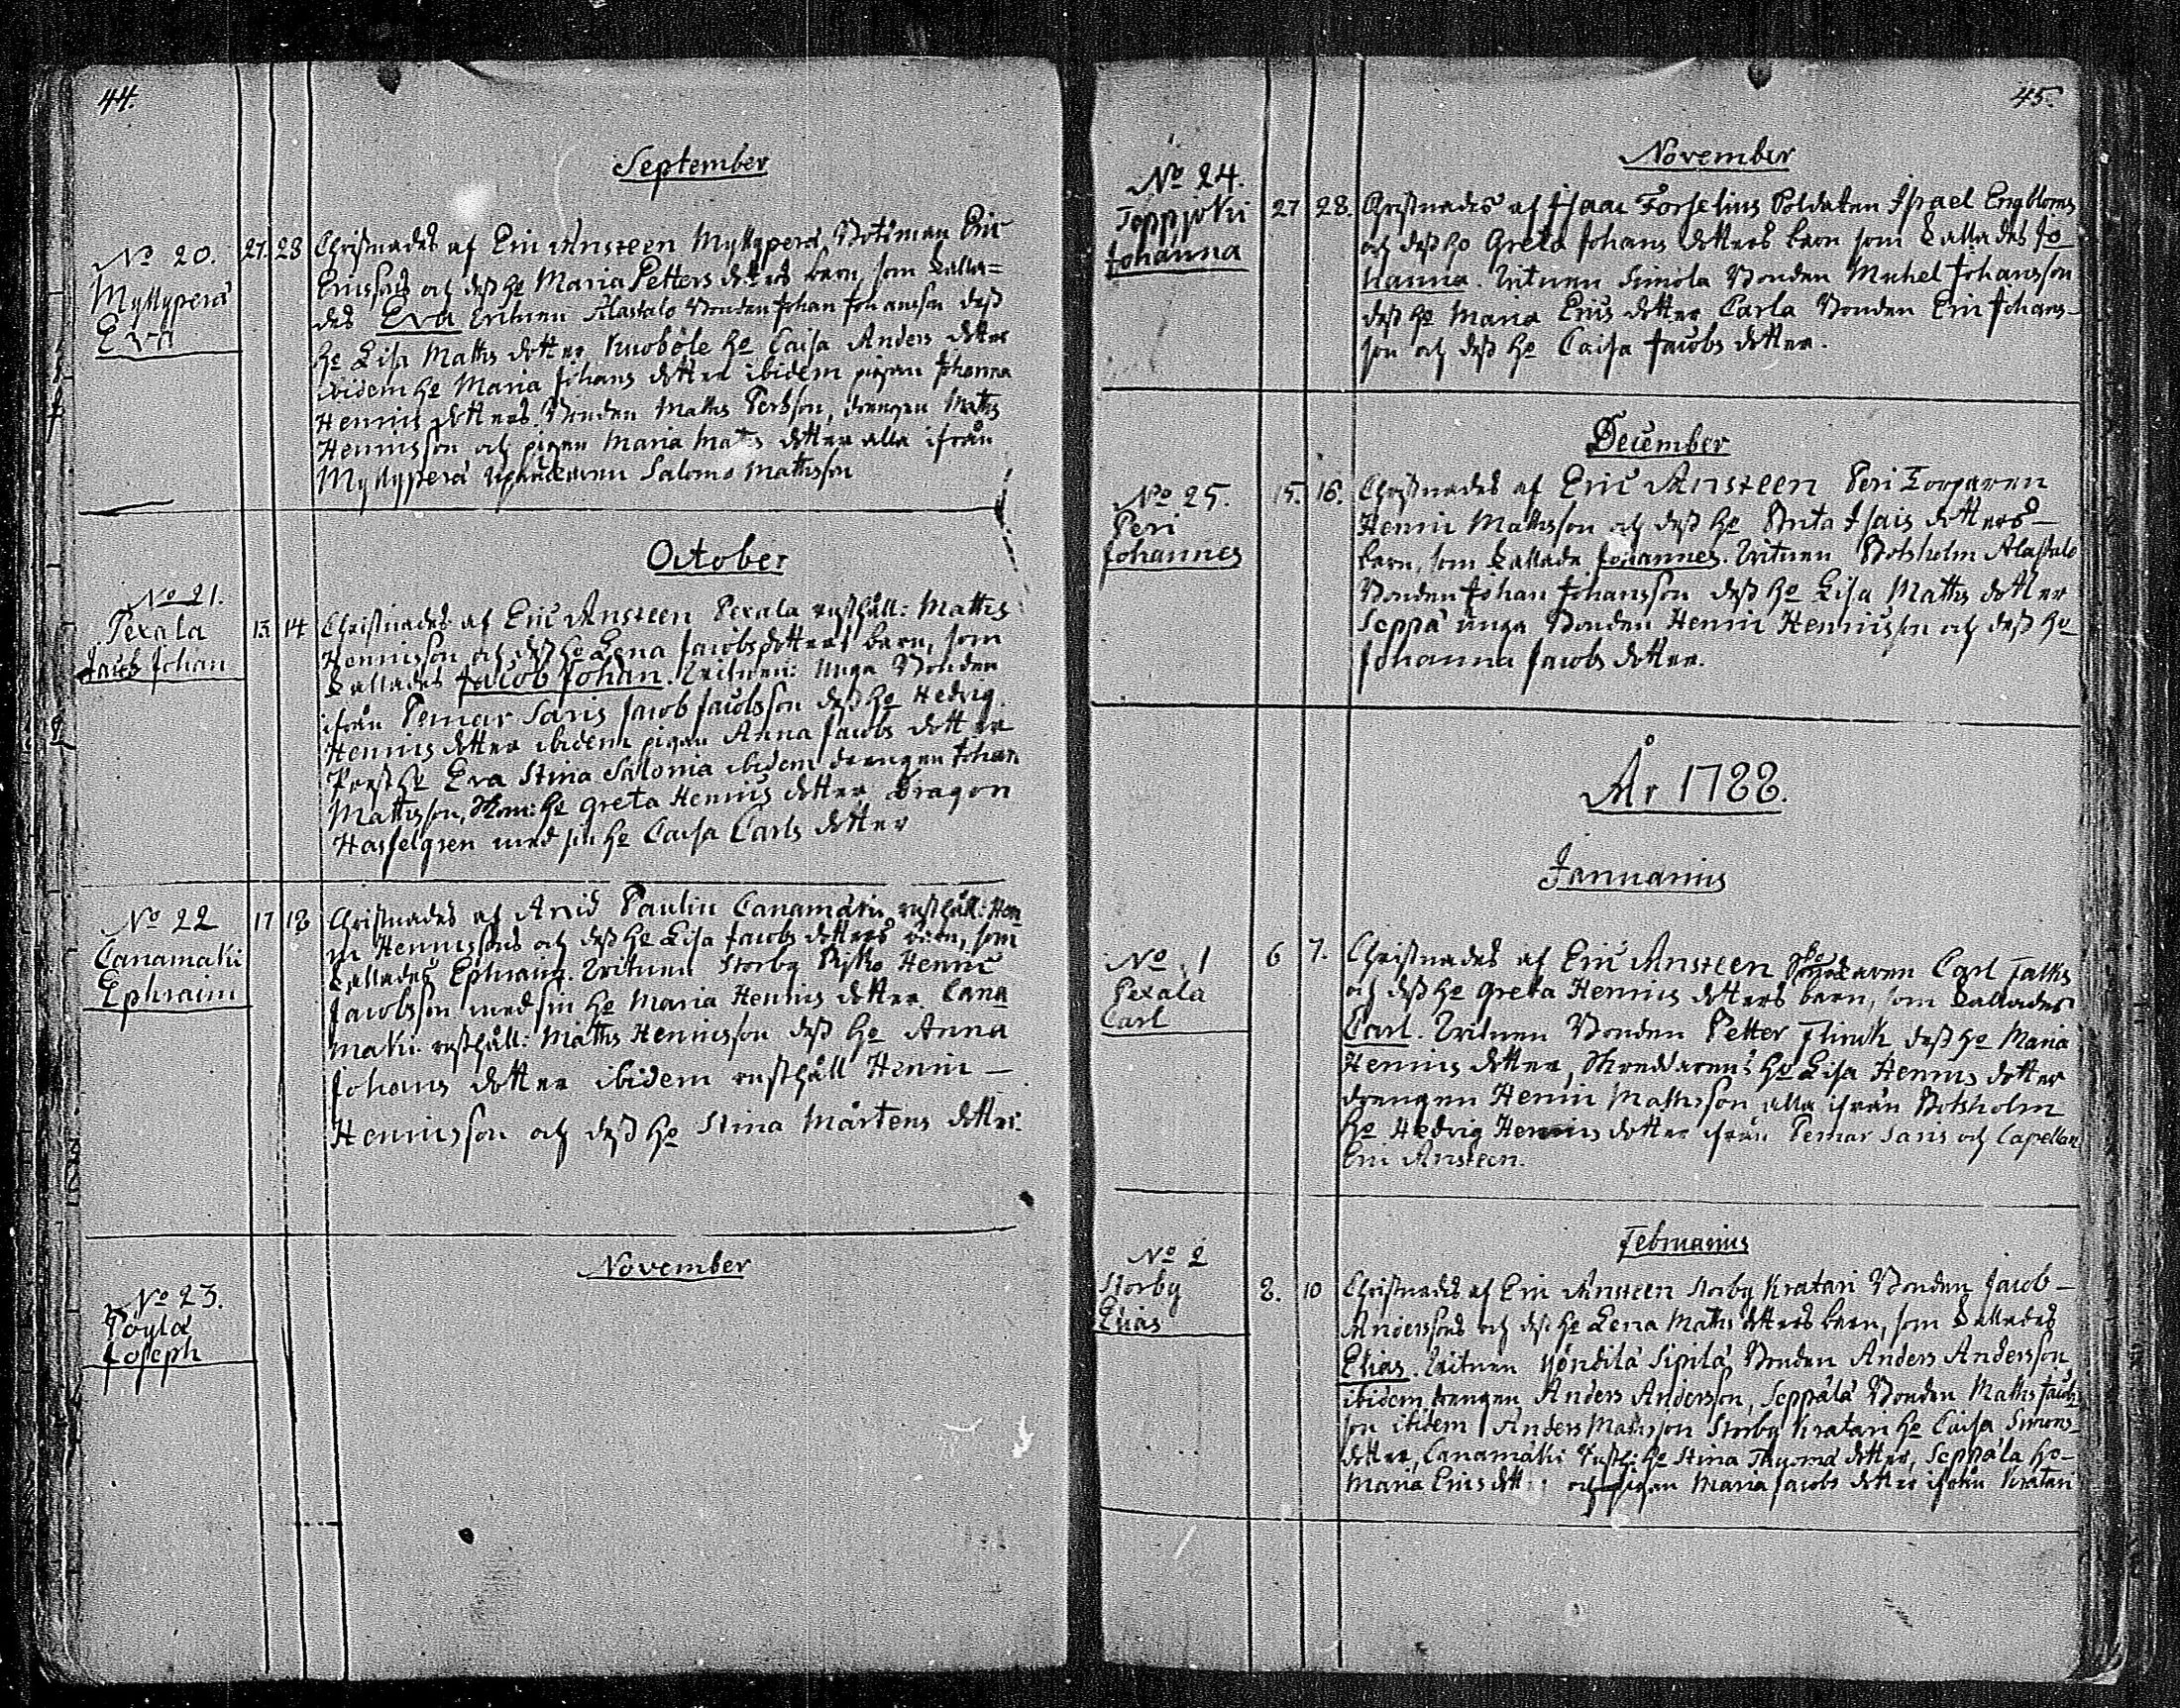 44.
September
No 20.
Myllyperä
Eva
27. 28
Christnades af Eric Ansteen Myllyperä, Botsman Eric
Ericssons och dess ho Maria Petters dotters barn, som kalla=
des Eva Vitnen Alastalo Bonden Johan Johansson dess
ho Lisa Matts dotter, Knoböle ho Caisa Anders dotter
ibidem ho Maria Johans dotter ibidem pigan Johanna
Henrics dotter. Bonden Matts Persson, drengen Matts
Henricsson och pigan Maria Matts dotter alla ifrån
Myllyperä Salomo Mattsson
October
No 21.
Pexala
Jacob Johan
13 14
Christnades af Eric Ansteen Pexala rusthåll: Matts
Henricsson och dess ho Lena Jacobs dotters barn, som
kallades Jacob Johan. Vitnen: Unga Bonden
ifrån Pemar Saris Jacob Jacobsson dess ho Hedvig
Henrics dotter ibidem pigan Anna Jacobs dotter
ho Eva Stina Salonia ibidem drengen Johan
Mattsson, ho Greta Henrics dotter, Dragon
Hasselgren med sin ho Caisa Carls dotter
No 22
Canamaki
Ephraim
17 18
Christnades af Arvid Paulin Canamäki rusthåll: Hen
ric Henricssons och dess ho Lisa Jacobs dotters barn, som
kallades Ephraim. Vitnen Storby Pijko Henric
Jacobsson med sin ho Maria Henrics dotter. Cana
maki rusthåll: Matts Henricsson dess ho Anna
Johans dotter ibidem rusthåll Henric —
Henricsson och dess ho Stina Mårtens dotter.
November
No 23.
Pöylä
Joseph
45.
November
No 24.
Toppjoki
Johanna
27 28.
Christnades af Isaac Forselius Soldaten Israel Engbloms
och dess ho Greta Johans dotters barn som kallades Jo
hanna. Vitnen Simola Bonden Michel Johansson
dess ho Maria Erics dotter Carla Bonden Eric Johans-
son och dess ho Caisa Jacobs dotter.
December
No 25.
Peri
Johannes
15. 16.
Christnades af Eric Ansteen Peri Torparen
Henric Mattsson och dess ho Brita Isacs dotters —
barn, som kallade Johannes. Vitnen Botsholm Alastalo
Bonden Johan Johansson dess ho Lisa Matts dotter
Seppä unga Bonden Henric Henricsson och dess ho
Johanna Jacobs dotter.
År 1788.
Januarius
No 1
Pexala
Carl
6 7.
Christnades af Eric Ansteen Carl Falks
och dess ho Greta Henrics dotters barn, som kallades
Carl. Vitnen Bonden Petter Flinck dess ho Maria
Henrics dotter, Skreddarens ho Lisa Henrics dotter
drengen Henric Mattsson alla ifrån Botsholm
ho Hedvig Henrics dotter ifrån Pemar Saris och Capellan
Eric Ansteen.
Februarius
No 2
Storby
Elias
8. 10
Christnades af Eric Ansteen Storby Kratari Bonden Jacob —
Anderssons och dess ho Lena Matts dotters barn, som kallades
Elias. Vitnen Nöndilä Sipilä Bonden Anders Andersson
ibidem drengen Anders Andersson, Seppälä Bonden Matts Jacobs
son ibidem Anders Mattsson Storby Kratari ho Caisa Simons-
dotter, Canamäki rusth: ho Stina dotter, Seppälä ho-
Maria Erics dott: och pigan Maria Jacobs dotter ifrån Kratari